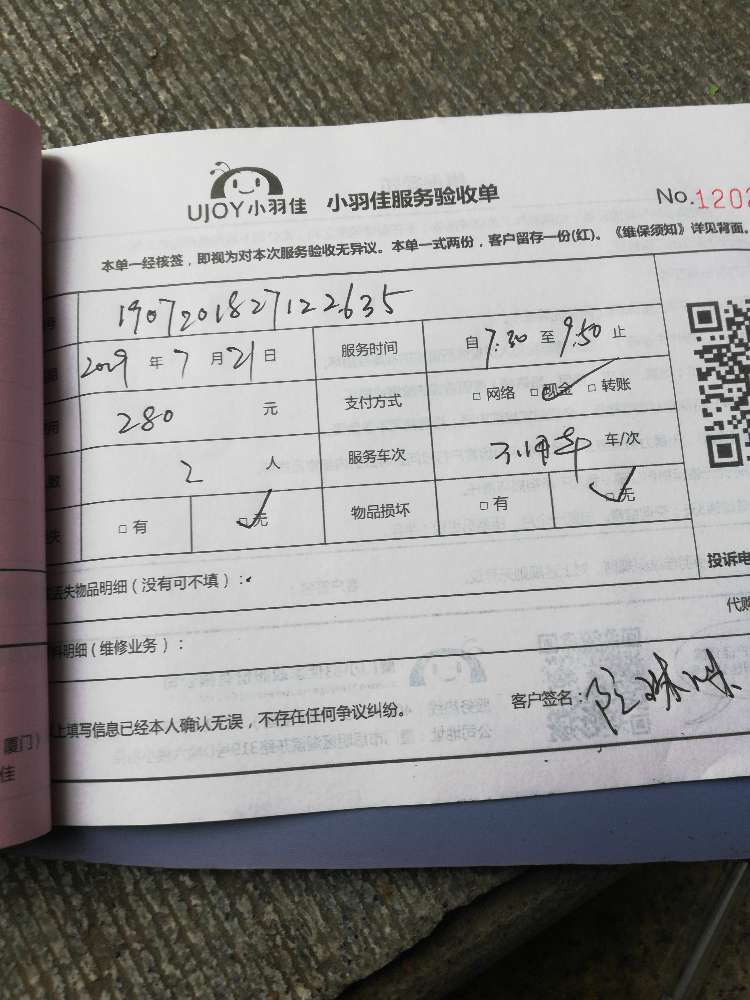 UJOY小羽佳 小羽佳服务验收单 No.1202
本单一经核签，即视为对本次服务验收无异议。本单一式两份，客户留存一份(红)。《维保须知》详见背面。
190720182712635
2019 年 7 月 21 日 服务时间 自 7:30 至 9:50 止
280 元 支付方式 □ 网络 □ 现金 □ 转账
数 2 人 服务车次 车/次
失 □ 有 □ 无 物品损坏 □ 有 □ 无
丢失物品明细（没有可不填）：
投诉电
料明细（维修业务）：
代购
上填写信息已经本人确认无误，不存在任何争议纠纷。 客户签名：
厦门）
佳